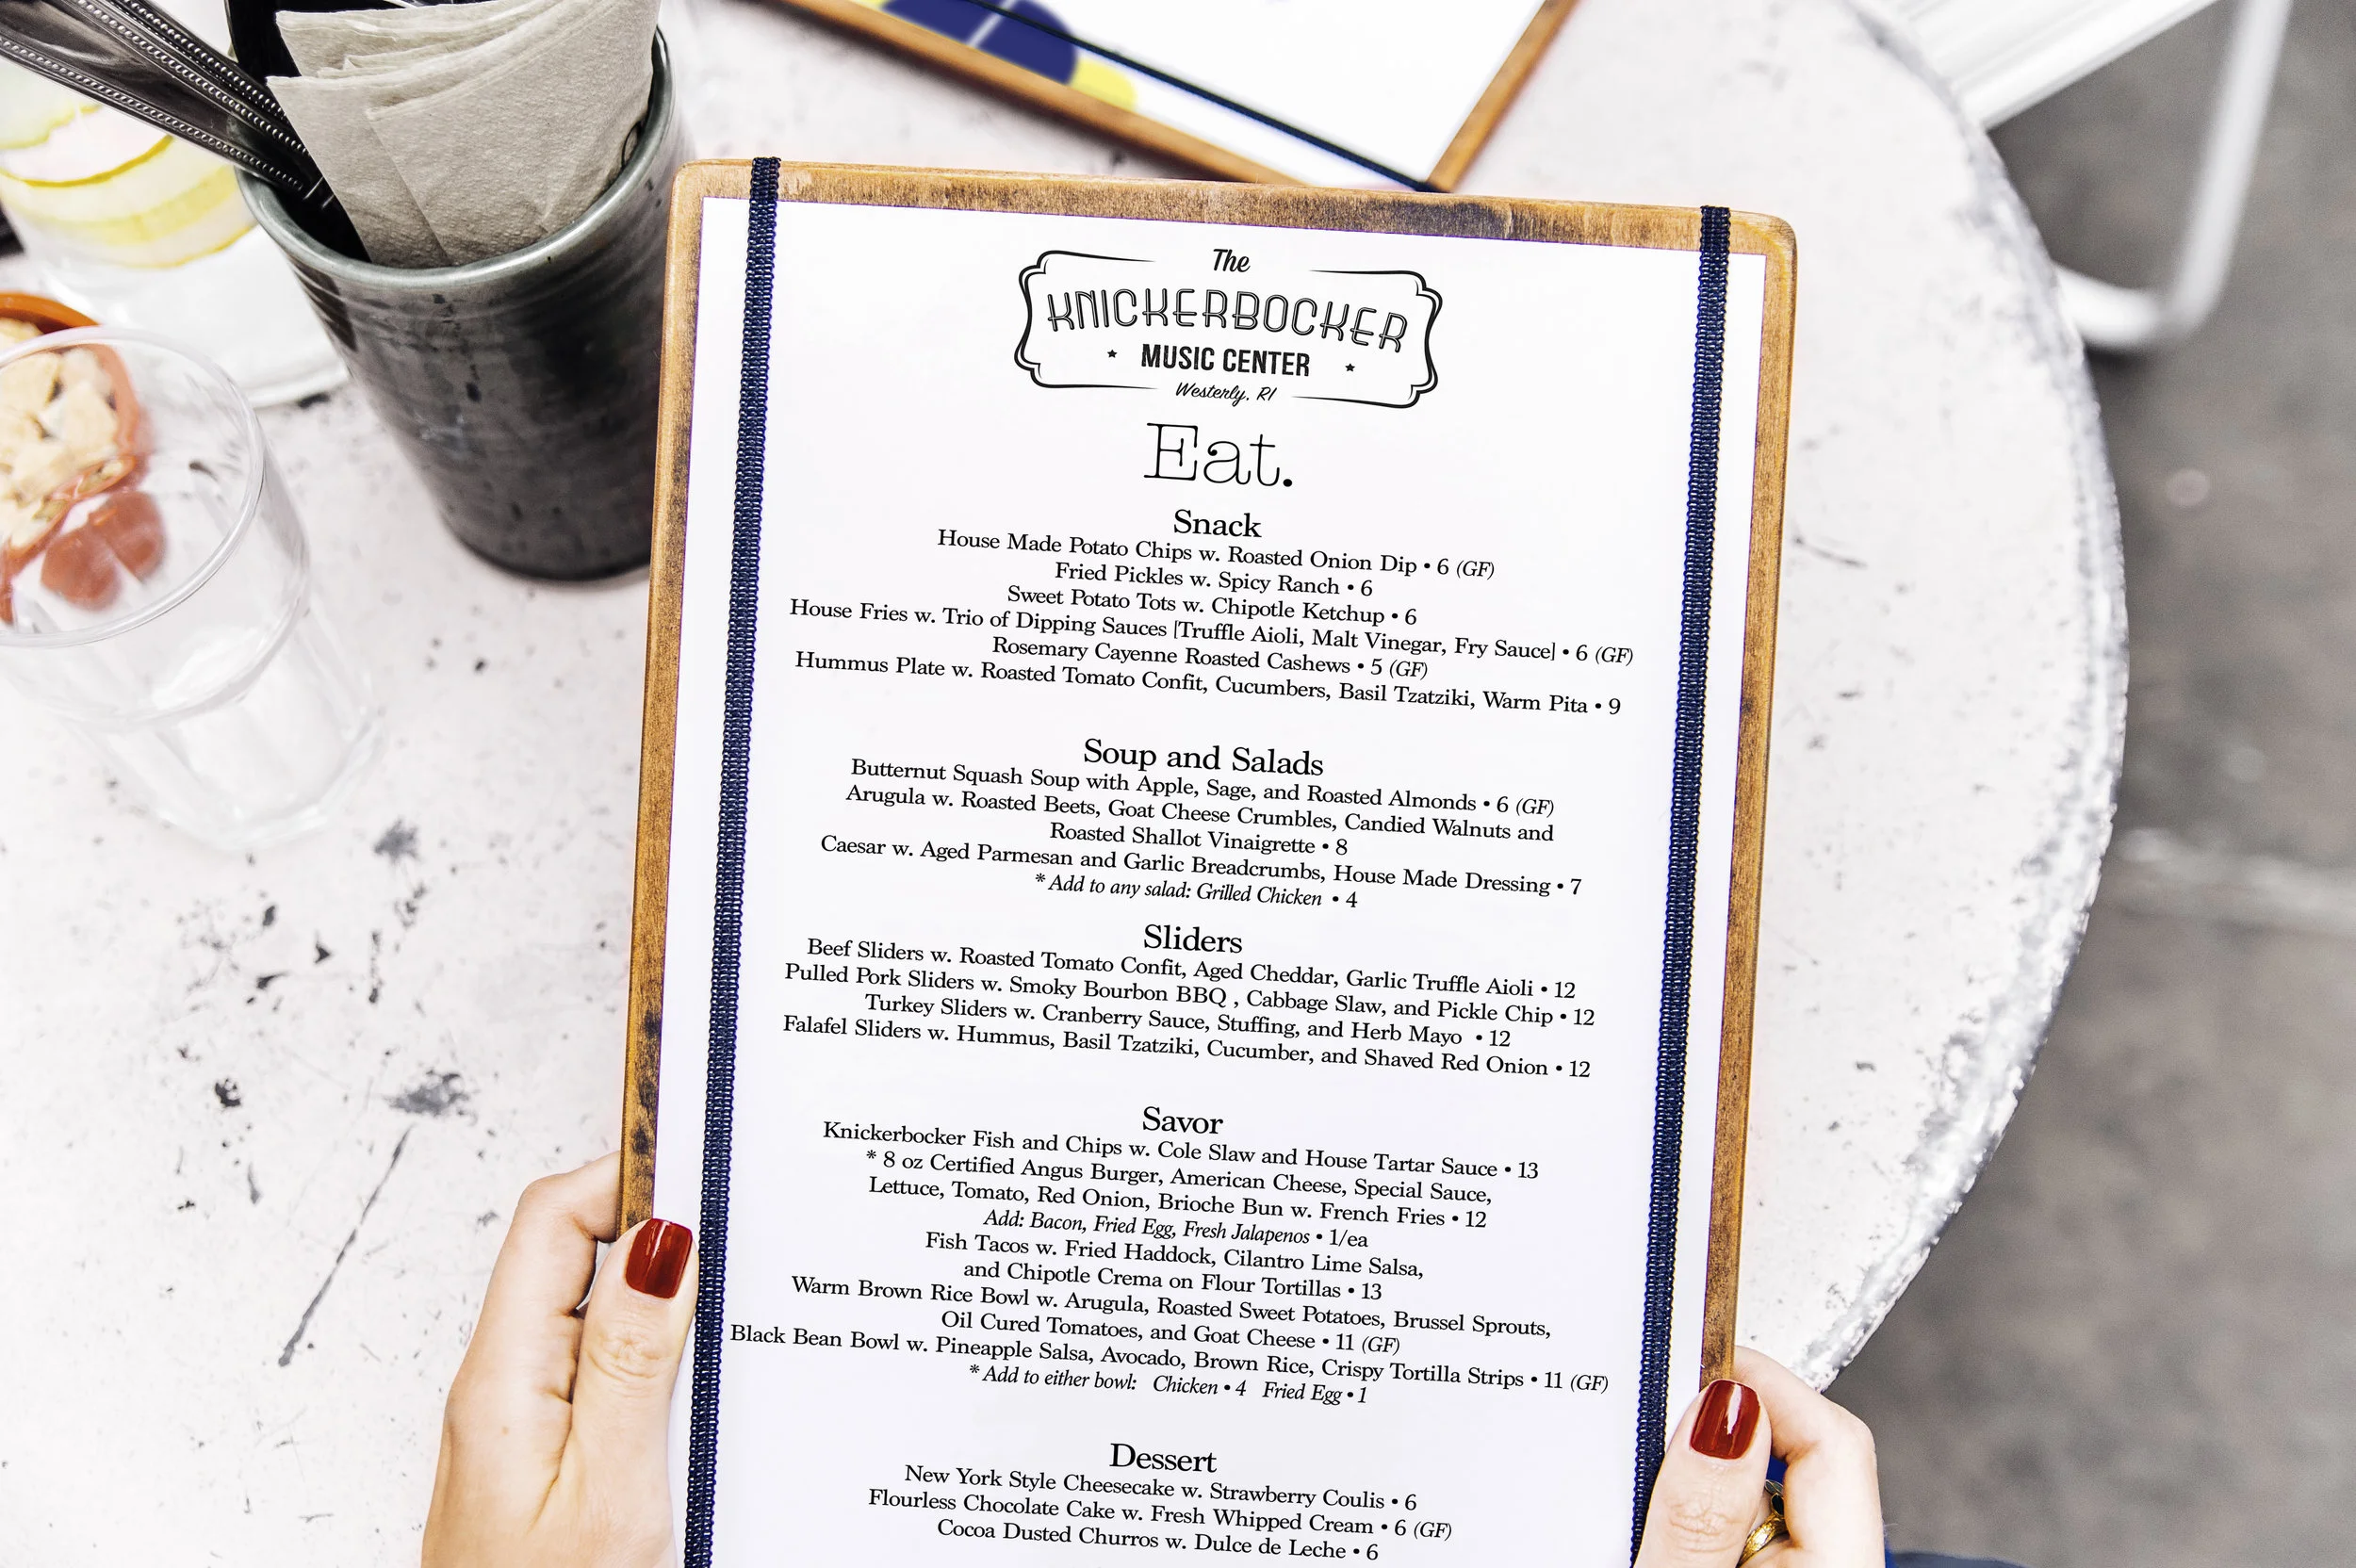 The
KNICKERBOCKER
★ MUSIC CENTER ★
Westerly, RI
Eat.
Snack
House Made Potato Chips w. Roasted Onion Dip • 6 (GF)
Fried Pickles w. Spicy Ranch • 6
Sweet Potato Tots w. Chipotle Ketchup • 6
House Fries w. Trio of Dipping Sauces [Truffle Aioli, Malt Vinegar, Fry Sauce] • 6 (GF)
Rosemary Cayenne Roasted Cashews • 5 (GF)
Hummus Plate w. Roasted Tomato Confit, Cucumbers, Basil Tzatziki, Warm Pita • 9
Soup and Salads
Butternut Squash Soup with Apple, Sage, and Roasted Almonds • 6 (GF)
Arugula w. Roasted Beets, Goat Cheese Crumbles, Candied Walnuts and
Roasted Shallot Vinaigrette • 8
Caesar w. Aged Parmesan and Garlic Breadcrumbs, House Made Dressing • 7
* Add to any salad: Grilled Chicken • 4
Sliders
Beef Sliders w. Roasted Tomato Confit, Aged Cheddar, Garlic Truffle Aioli • 12
Pulled Pork Sliders w. Smoky Bourbon BBQ , Cabbage Slaw, and Pickle Chip • 12
Turkey Sliders w. Cranberry Sauce, Stuffing, and Herb Mayo • 12
Falafel Sliders w. Hummus, Basil Tzatziki, Cucumber, and Shaved Red Onion • 12
Savor
Knickerbocker Fish and Chips w. Cole Slaw and House Tartar Sauce • 13
* 8 oz Certified Angus Burger, American Cheese, Special Sauce,
Lettuce, Tomato, Red Onion, Brioche Bun w. French Fries • 12
Add: Bacon, Fried Egg, Fresh Jalapenos • 1/ea
Fish Tacos w. Fried Haddock, Cilantro Lime Salsa,
and Chipotle Crema on Flour Tortillas • 13
Warm Brown Rice Bowl w. Arugula, Roasted Sweet Potatoes, Brussel Sprouts,
Oil Cured Tomatoes, and Goat Cheese • 11 (GF)
Black Bean Bowl w. Pineapple Salsa, Avocado, Brown Rice, Crispy Tortilla Strips • 11 (GF)
* Add to either bowl: Chicken • 4 Fried Egg • 1
Dessert
New York Style Cheesecake w. Strawberry Coulis • 6
Flourless Chocolate Cake w. Fresh Whipped Cream • 6 (GF)
Cocoa Dusted Churros w. Dulce de Leche • 6